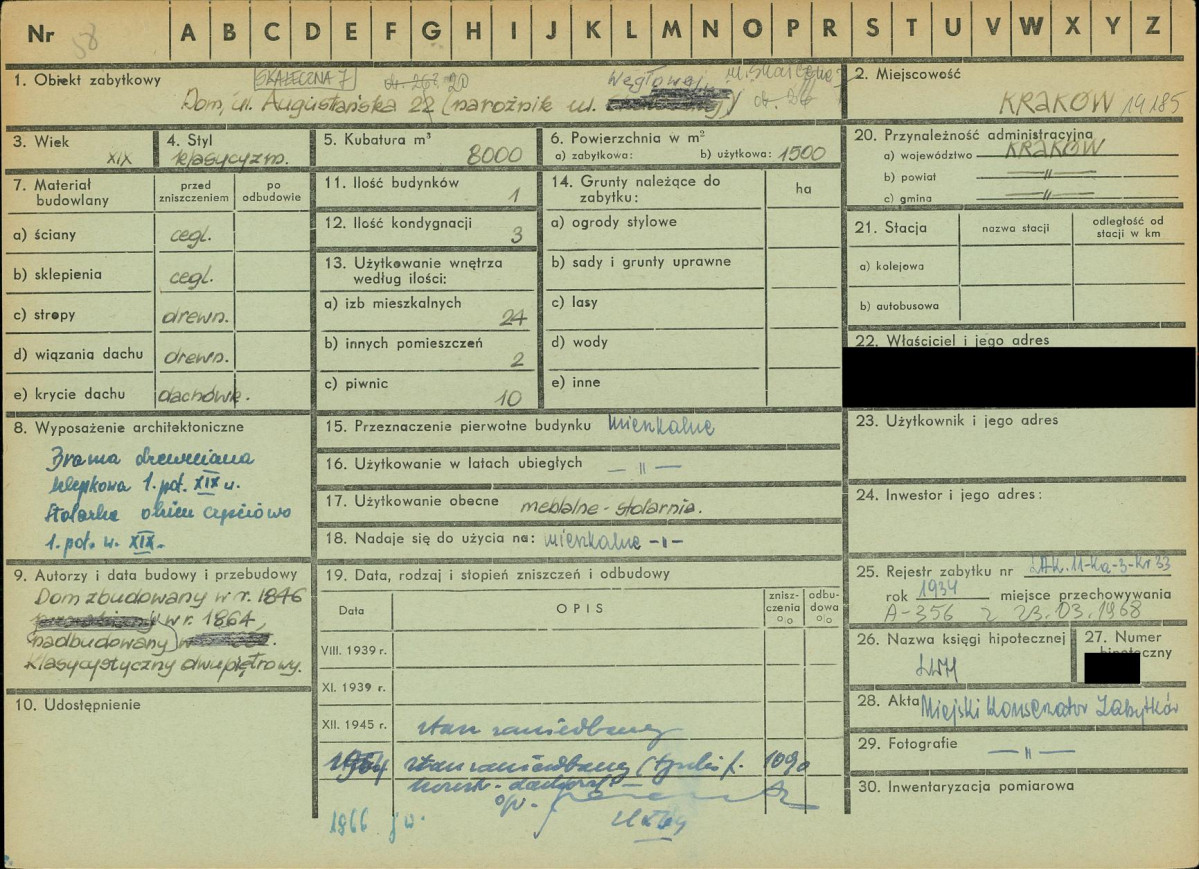 Nr 58 A B C D E F G H I J K L M N O P R S T U V W X Y Z
1. Obiekt zabytkowy
SKAŁECZNA 7 d. 20
Dom, ul. Augustiańska 22 (narożnik ul. Węgłowej)
2. Miejscowość
KRAKÓW 19185
3. Wiek
XIX
4. Styl
klasycyzm.
5. Kubatura m³
8000
6. Powierzchnia w m²
a) zabytkowa: b) użytkowa: 1500
20. Przynależność administracyjna
a) województwo KRAKÓW
b) powiat —"—
c) gmina —"—
7. Materiał budowlany
przed zniszczeniem
po odbudowie
a) ściany cegl.
b) sklepienia cegl.
c) stropy drewn.
d) wiązania dachu drewn.
e) krycie dachu dachówk.
11. Ilość budynków
1
12. Ilość kondygnacji
3
13. Użytkowanie wnętrza
według ilości:
a) izb mieszkalnych
24
b) innych pomieszczeń
2
c) piwnic
10
14. Grunty należące do
zabytku:
ha
a) ogrody stylowe
b) sady i grunty uprawne
c) lasy
d) wody
e) inne
21. Stacja
nazwa stacji
odległość od
stacji w km
a) kolejowa
b) autobusowa
22. Właściciel i jego adres
8. Wyposażenie architektoniczne
Brama drewniana
klepkowa 1. poł. XIX w.
Stolarka okien częściowo
1. poł. w. XIX.
15. Przeznaczenie pierwotne budynku mieszkalne
16. Użytkowanie w latach ubiegłych —"—
17. Użytkowanie obecne meblalne - stolarnia.
18. Nadaje się do użycia na: mieszkalne —"—
23. Użytkownik i jego adres
24. Inwestor i jego adres:
9. Autorzy i data budowy i przebudowy
Dom zbudowany w r. 1846
w r. 1864,
nadbudowany w
Klasycystyczny dwupiętrowy.
10. Udostępnienie
19. Data, rodzaj i stopień zniszczeń i odbudowy
Data
OPIS
znisz-
czenia
%
odbu-
dowa
%
VIII. 1939 r.
XI. 1939 r.
XII. 1945 r. stan zaniedbany
1964 stan zaniedbany 10%
1966 j.w.
25. Rejestr zabytku nr LAK.11-Ka-3-Kr33
rok 1934 miejsce przechowywania
A-356 z 23.03.1968
26. Nazwa księgi hipotecznej
LWH
27. Numer
hipoteczny
28. Akta Miejski Konserwator Zabytków
29. Fotografie —"—
30. Inwentaryzacja pomiarowa